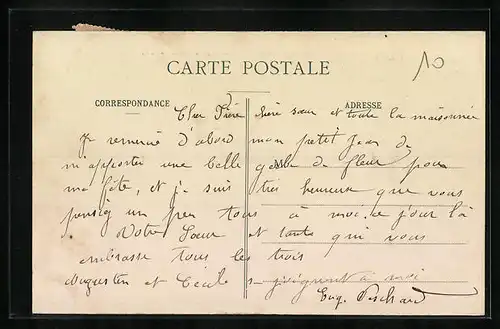 10
CARTE POSTALE
CORRESPONDANCE
ADRESSE
Cher Frère chère sœur et toute la maisonnée
Je remercie d'abord mon petit Jean de
m'apporter une belle de fleur pour
ma fête, et je suis très heureuse que vous
pensiez un peu tous à moi ce jour là
Votre Sœur et tante qui vous
embrasse tous les trois
Augustin et Cécile se joignent à moi
Eug.